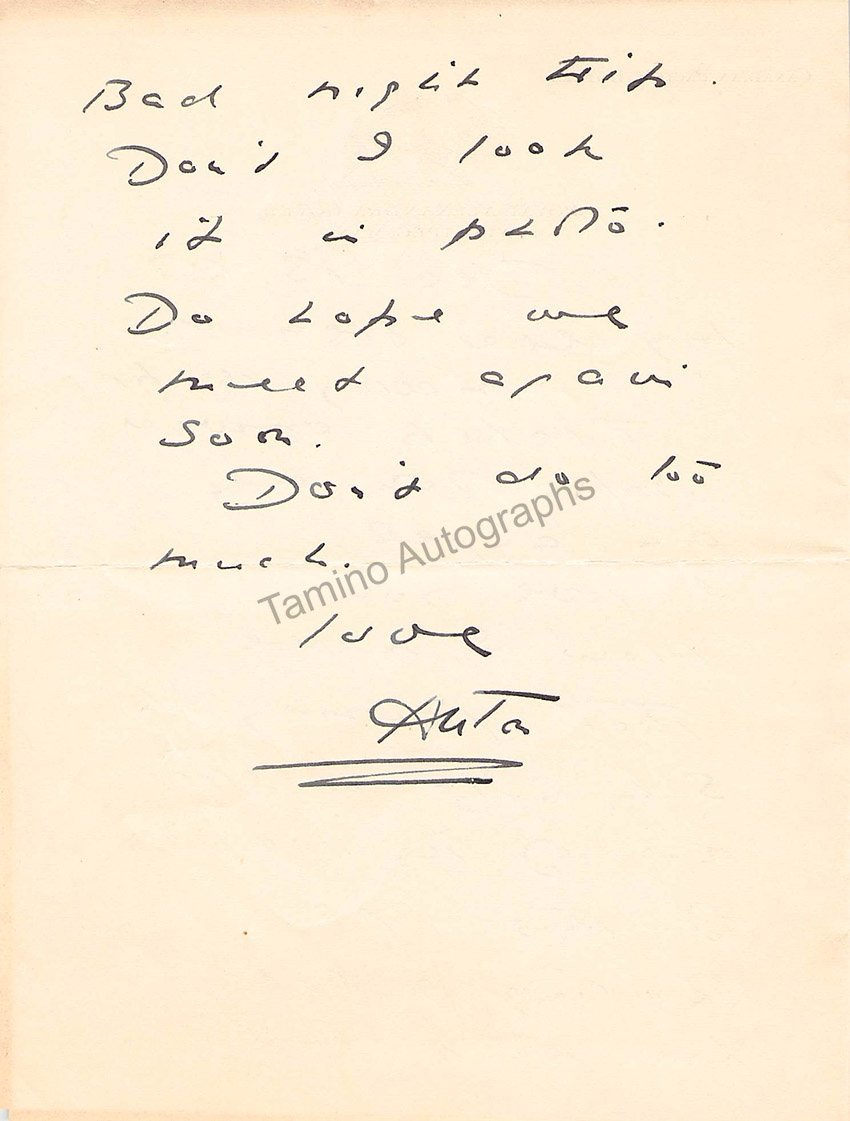 Bad night trip.
Don't I look
it in photo.
Do hope we
meet again
soon.
Don't do too
much.
love
Anton
Tamino Autographs